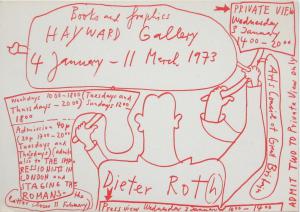 Books and graphics
HAYWARD Gallery
4 January - 11 March 1973
PRIVATE VIEW
Wednesday
3 January
14.00 - 20.00
Weekdays 10.00-18.00
Tuesdays and
Thursdays - 20.00
Sundays 12.00
18.00
Admission 40p
Tuesdays and
Thursdays
also to THE IMP-
RESSIONISTS IN
LONDON and
STAGING THE
ROMANS.
11 February)
Arts Council of Great Britain
ADMIT TWO TO Private View only
Dieter Rot(h)
Press view Wednesday 3 January 10.00 - 14.00